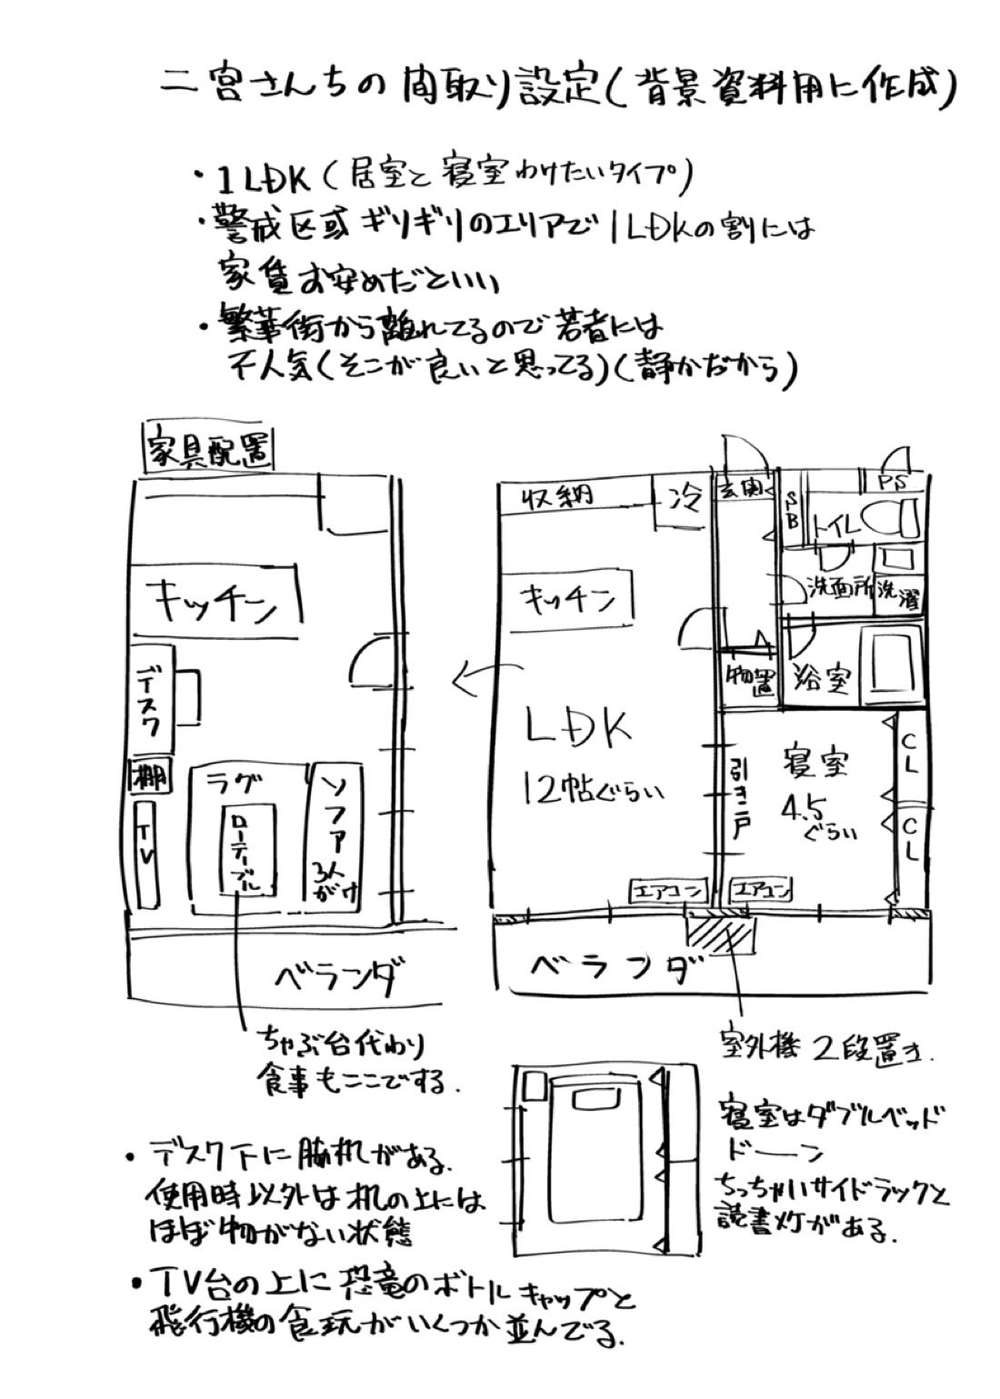 二宮さんちの間取り設定(背景資料用に作成)
・1LDK(居室と寝室わけたいタイプ)
・警戒区域ギリギリのエリアで1LDKの割には
家賃お安めだといい
・繁華街から離れてるので若者には
不人気(そこが良いと思ってる)(静かだから)
家具配置
キッチン
デスク
棚
TV
ラグ
ローテーブル
ソファ
3人がけ
ベランダ
ちゃぶ台代わり
食事もここでする.
収納
冷
玄関
SB
トイレ
PS
キッチン
洗面所
洗濯
物置
浴室
LDK
12帖ぐらい
引き戸
寝室
4.5
ぐらい
CL
CL
エアコン
エアコン
ベランダ
室外機 2段置き.
寝室はダブルベッド
ドーン
ちっちゃいサイドラックと
読書灯がある.
・デスク下に脇机がある.
使用時以外は机の上には
ほぼ物がない状態
・TV台の上に恐竜のボトルキャップと
飛行機の食玩がいくつか並んでる.